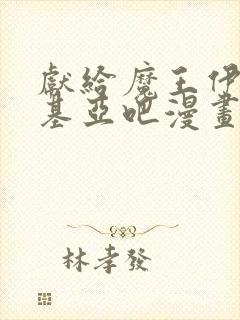 獻給魔王伊
基亞吧漫畫
林孝發